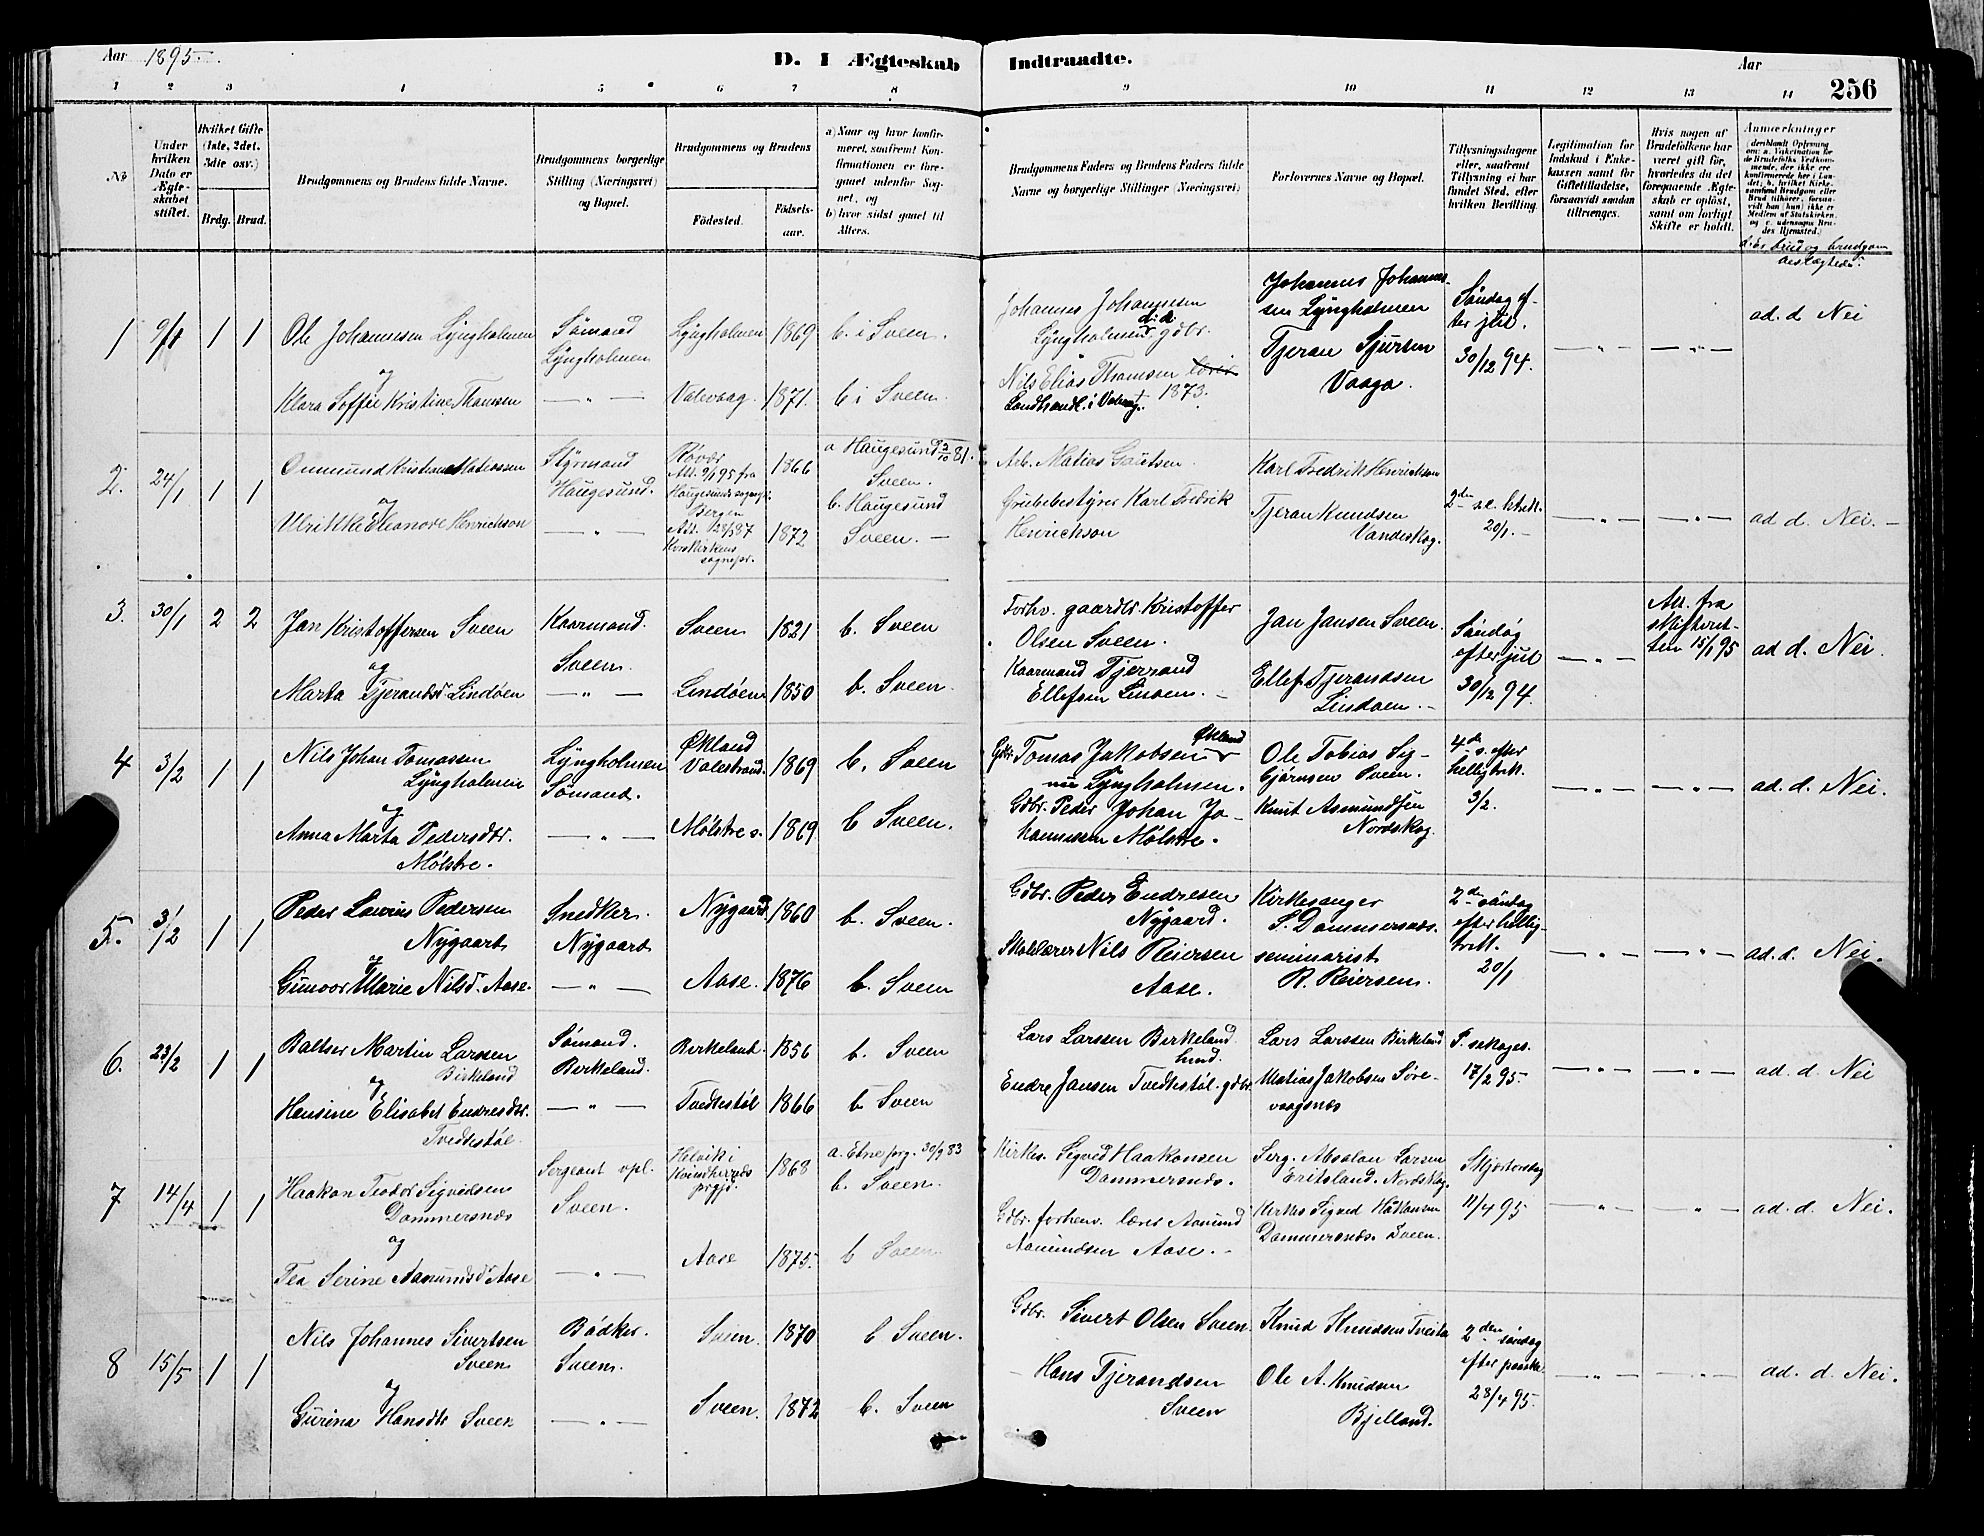 Aar 1895.
D. I Ægteskab Indtraadte.
Aar
256
1 2 3 4 5 6 7 8 9 10 11 12 13 14
No
Under hvilken Dato er Ægteskabet stiftet.
Hvilket Gifte (1ste, 2det, 3die osv.)
Brdg. Brud.
Brudgommens og Brudens fulde Navne.
Brudgommens borgerlige Stilling (Næringsvei) og Bopæl.
Brudgommens og Brudens
Födested.
Födselsaar.
a) Naar og hvor konfirmeret, saafremt Konfirmationen er foregaaet udenfor Sognet, og
b) hvor sidst gaaet til Alters.
Brudgommens Faders og Brudens Faders fulde Navne og borgerlige Stillinger (Næringsvei)
Forlovernes Navne og Bopæl.
Tillysningsdagene eller, saafremt Tillysning ei har fundet Sted, efter hvilken Bevilling.
Legitimation for Indskud i Enkekassen samt for Giftetilladelse, forsaavidt saadan tiltrænges.
Hvis nogen af Brudefolkene har været gift før, hvorledes da det foregaaende Ægteskab er oplöst, samt om lovligt Skifte er holdt.
Anmærkninger
d. Er brud og brudgom beslægtede.
1 9/1 1 1
Ole Johannesen Lyngholmen
og
Klara Soffie Kristine Thomsen
Sömand
Lyngholmen
— " —
Lyngholmen 1869
Valevaag. 1871.
b. i Sveen.
b i Sveen.
Johannes Johannesen
Lyngholmen gdbr.
Nils Elias Thomsen
Landhandl. i Valevaag. 1873.
Johannes Johannessen Lyngholmen
Tjeran Sjursen
Vaaga.
Søndag efter jul.
30/12 94.
— " — — " —
ad. d Nei
2. 24/1 1 1
Onmund Kristian Matiassen
og
Ulrikke Eleanore Henrichson
Styrmand
Haugesund.
— " —
Røvær
Att. 9/1 95 fra
Haugesunds sognepr.
1866
Bergen
Korskirkens
sognepr.
1872
a Haugesund 2/10 81.
Sveen.
b. Haugesund
Sveen. —
Arb. Matias Gautsen.
Grubebestyrer Karl Fredrik
Henrichson
Karl Fredrik Henrichson
Tjeran Knudsen
Vandeskog.
2den s. e. h.trek.
20/1. —
— " — — " —
ad d. Nei. —
3. 30/1 2 2
Jan Kristoffersen Sveen
og
Marta Tjerandsdr Lindøen
Kaarmand.
Sveen.
— " —
Sveen 1821
Lindøen 1850
b. Sveen
b. Sveen.
Forhv. gaardbr. Kristoffer
Olsen Sveen.
Kaarmand Tjerrand
Ellefsen Linoen. —
Jan Jansen Sveen.
Ellef Tjerandsen
Lindoen. —
Søndag
efter jul
30/12 94.
— " —
Att. fra
skifteretten 15/1 95
ad d. Nei.
4 3/2 1 1
Nils Johan Tomassen
Lyngholmen
og
Anna Marta Pedersdtr.
Mølstre.
Lyngholmen
Sömand.
— " —
Økland
Valestrand. 1869
Mölstre s. 1869
b. Sveen
b Sveen.
Gdbr. Tomas Jakobsen Økland
nu Lyngholmen.
Gdbr. Peder Johan Johannessen Mølstre.
Ole Tobias Sigbjørnsen Sveen.
Knut Asmundsen
Nordskog.
4de s. efter
helligtrek.
3/2.
— " — — " —
ad. d. Nei.
5. 3/2 1 1
Peder Laurius Pedersen
Nygaard
og
Gunvor Marie Nilsd. Aase.
Snedker.
Nygaard
— " —
Nygaard. 1860
Aase. 1876
b. Sveen.
b. Sveen
Gdbr. Peder Endresen
Nygaard.
Skolelærer Nils Reiersen
Aase.
Kirkesanger
S. Dommersnes.
seminarist
R. Reiersen.
2den søndag
efter helligtrett.
20/1
— " — — " —
ad. d. Nei.
6. 23/2 1 1
Baltser Martin Larsen
Birkeland
og
Hansine Elisabet Endresdtr.
Tvedtestøl
Sömand.
Birkeland.
— " —
Birkeland. 1856
Tvedtestöl 1866
b. Sveen
b Sveen
Lars Larssen Birkeland
husd.
Endre Jansen Tvedtestöl. gdbr.
Lars Larssen Birkeland
Matias Jakobsen Sørevaagsnes
S. sekages.
17/2 95.
— " — — " —
ad. d. Nei
7 14/4 1 1
Haakon Teodor Sigvedsen
Dommersnes
og
Tea Serine Aamundsdr Aase
Sergeant vpl.
Sveen.
— " —
Helvik i
Kvindherreds
prgj.
1868
Aase 1875.
a. Etne prg. 30/9 83
b. Sveen.
b Sveen.
Kirkes. Sigved Haakonsen
Dommersnes.
Gdbr. forhenv. lærer Aamund
Aamundsen Aase. —
Serg. Absalon Larsen
Eritsland. Nordskog.
Kirkes Sigved Håkonsen
Dommersnes. Sveen.
Skjærtorsdag
11/4 95
— " — — " —
ad. d. Nei.
8 15/5 1 1
Nils Johannes Sivertsen
Sveen
og
Gurina Hansdtr Sveen
Bödker.
Sveen.
— " —
Sveen. 1870
Sveen. 1872
b Sveen.
b. Sveen
Gdbr. Sivert Olsen Sveen
— Hans Tjerandsen
Sveen
Knud Knudsen Tveita
Ole A. Knudsen
Bjelland.
2den søndag
efter paaske.
28/4 95.
— " — — " —
ad. d. Nei.